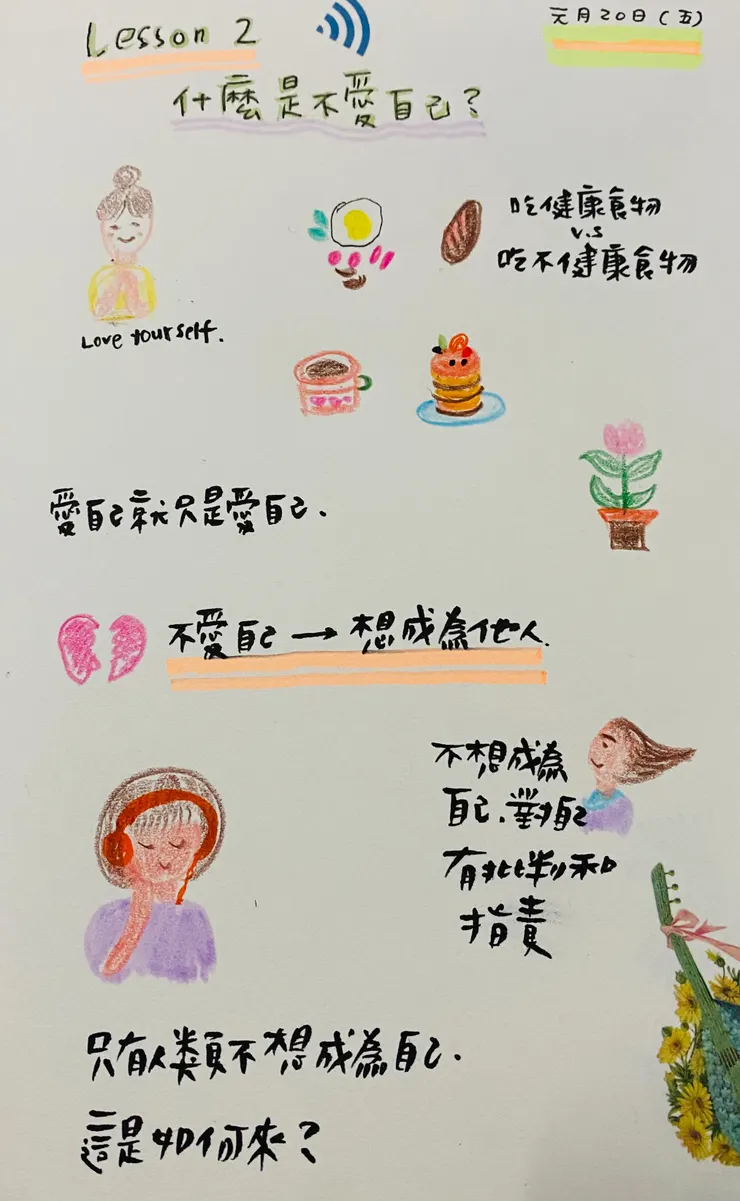 Lesson 2
元月20日(五)
什麼是不愛自己?
吃健康食物
v.s
吃不健康食物
Love yourself.
愛自己就只是愛自己.
不愛自己→想成為他人.
不想成為
自己.對自己
有批判和
指責
只有人類不想成為自己.
這是如何來?